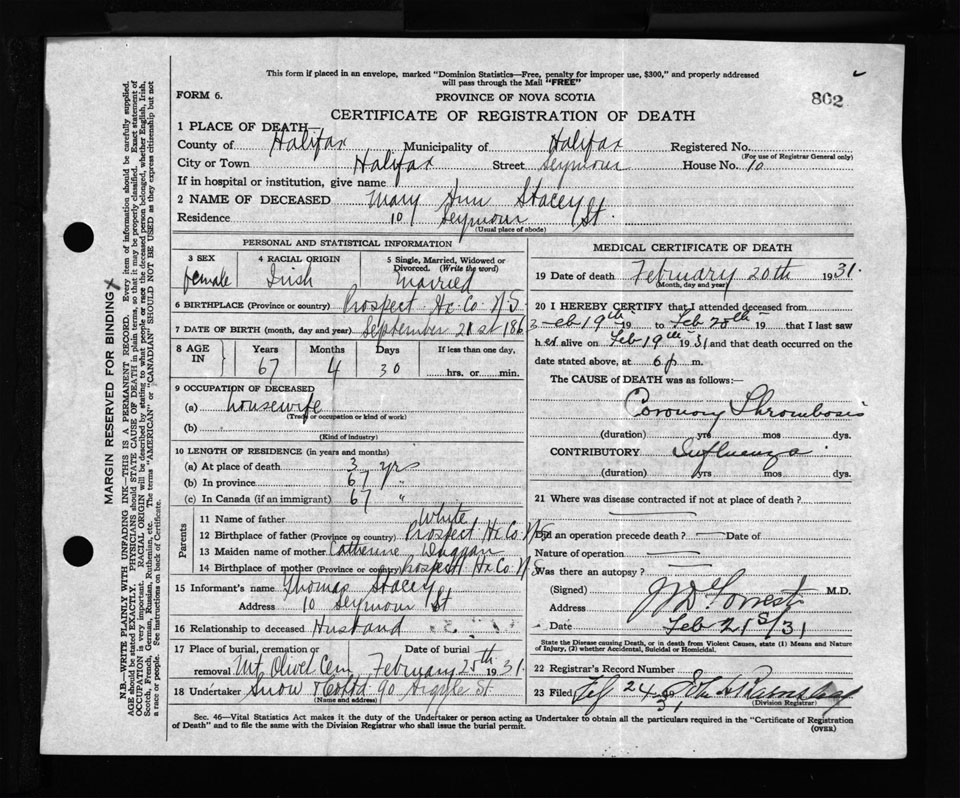 This form if placed in an envelope, marked "Dominion Statistics—Free, penalty for improper use, $300," and properly addressed
will pass through the Mail "FREE"
802
FORM 6.
PROVINCE OF NOVA SCOTIA
CERTIFICATE OF REGISTRATION OF DEATH
1 PLACE OF DEATH—
County of Halifax Municipality of Halifax Registered No.
(For use of Registrar General only)
City or Town Halifax Street Seymour House No. 10
If in hospital or institution, give name
2 NAME OF DECEASED Mary Ann Stacey
Residence 10 Seymour St.
(Usual place of abode)
PERSONAL AND STATISTICAL INFORMATION
3 SEX 4 RACIAL ORIGIN 5 Single, Married, Widowed or
Divorced. (Write the word)
female Irish Married
6 BIRTHPLACE (Province or country) Prospect Hx. Co. N S.
7 DATE OF BIRTH (month, day and year) September 21st 1863
8 AGE IN Years Months Days If less than one day,
67 4 30 hrs. or min.
9 OCCUPATION OF DECEASED
(a) housewife
(Trade or occupation or kind of work)
(b)
(Kind of industry)
10 LENGTH OF RESIDENCE (in years and months)
(a) At place of death 3 yrs
(b) In province 67 "
(c) In Canada (if an immigrant) 67 "
Parents
11 Name of father White
12 Birthplace of father (Province or country) Prospect Hx Co. N S
13 Maiden name of mother Catherine Duggan
14 Birthplace of mother (Province or country) Prospect Hx Co. N S
15 Informant's name Thomas Stacey
Address 10 Seymour St
16 Relationship to deceased Husband
17 Place of burial, cremation or Date of burial
removal Mt. Olivet Cem February 25th 1931
18 Undertaker Snow & Co Ltd 90 Argyle St.
(Name and address)
MEDICAL CERTIFICATE OF DEATH
19 Date of death February 20th 1931.
(Month, day and year)
20 I HEREBY CERTIFY that I attended deceased from
Feb 19th 19 to Feb 20th 19 that I last saw
her alive on Feb 19th 1931 and that death occurred on the
date stated above, at 6 p m.
The CAUSE of DEATH was as follows:
Coronary Thrombosis
(duration) yrs mos dys.
CONTRIBUTORY Influenza
(duration) yrs mos dys.
21 Where was disease contracted if not at place of death?
Did an operation precede death? Date of
Nature of operation
Was there an autopsy?
(Signed) M.D.
Address
Date Feb 21st/31
State the Disease causing Death, or in death from Violent Causes, state (1) Means and Nature
of Injury, (2) whether Accidental, Suicidal or Homicidal.
22 Registrar's Record Number
23 Filed Feb 24 31
(Division Registrar)
Sec. 46—Vital Statistics Act makes it the duty of the Undertaker or person acting as Undertaker to obtain all the particulars required in the "Certificate of Registration
of Death" and to file the same with the Division Registrar who shall issue the burial permit.
(OVER)
MARGIN RESERVED FOR BINDING
N.B.—WRITE PLAINLY WITH UNFADING INK—THIS IS A PERMANENT RECORD. Every item of information should be carefully supplied.
AGE should be stated EXACTLY. PHYSICIANS should STATE CAUSE OF DEATH in plain terms, so that it may be properly classified. Exact statement of
OCCUPATION is very important. RACIAL ORIGIN will be described by stating to what people or race the deceased person belonged, whether English, Irish,
Scotch, French, German, Russian, Ruthenian, etc. The terms "AMERICAN" or "CANADIAN" SHOULD NOT BE USED as they express citizenship but not
a race or people. See instructions on back of Certificate.